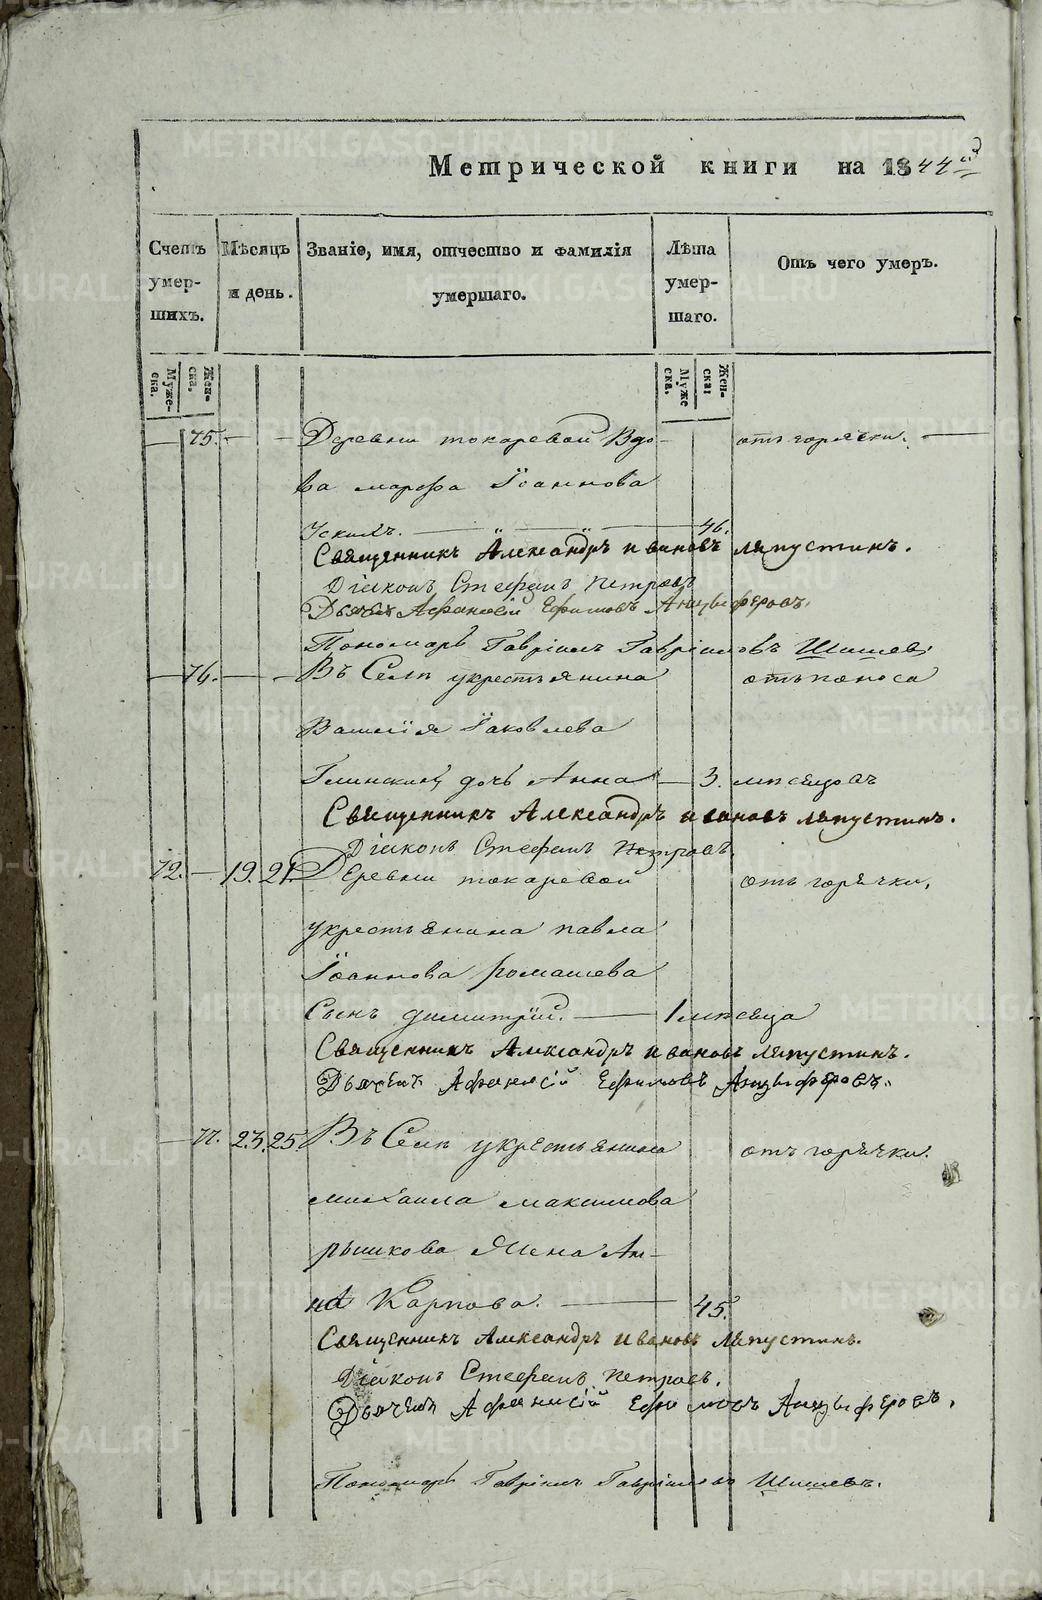 Метрической книги на 1844й
Счетъ умершихъ.
Мѣсяцъ и день.
Званіе, имя, отчество и фамилія умершаго.
Лѣта умершаго.
Отъ чего умеръ.
Мужеска.
Женска.
Муже ска.
Женска:
75. Деревни токаревой Вдо- отъ горячки.
ва марфа Іоаннова
46.
Священникъ Александръ ивановъ ляпустинъ.
Діаконъ Стефанъ Петровъ
Дьячекъ Афанасій Ефимовъ Анцыферовъ.
Пономарь Гавріилъ Гавріиловъ Шишевъ
76. Въ Селѣ укрестьянина отъ поноса
Василія Іаковлева
Глинскихъ дочь Анна 3. мѣсяцовъ
Священникъ Александръ ивановъ ляпустинъ.
Діаконъ Стефанъ Петровъ.
72. 19. 21. Деревни токаревой отъ горячки.
укрестьянина павла
Іоаннова ромашева
Сынъ димитрій. 1 мѣсяца
Священникъ Александръ ивановъ ляпустинъ.
Дьячекъ Афанасій Ефимовъ Анцыферовъ.
77. 23. 25. Въ Селѣ укрестьянина отъ горячки.
михаила максимова
рышкова Жена Ан-
на Карпова. 45.
Священникъ Александръ ивановъ ляпустинъ.
Діаконъ Стефанъ Петровъ.
Дьячекъ Афанасій Ефимовъ Анцыферовъ.
Пономарь Гавріилъ Гавріиловъ Шишевъ.
METRIKI.GASO-URAL.RU